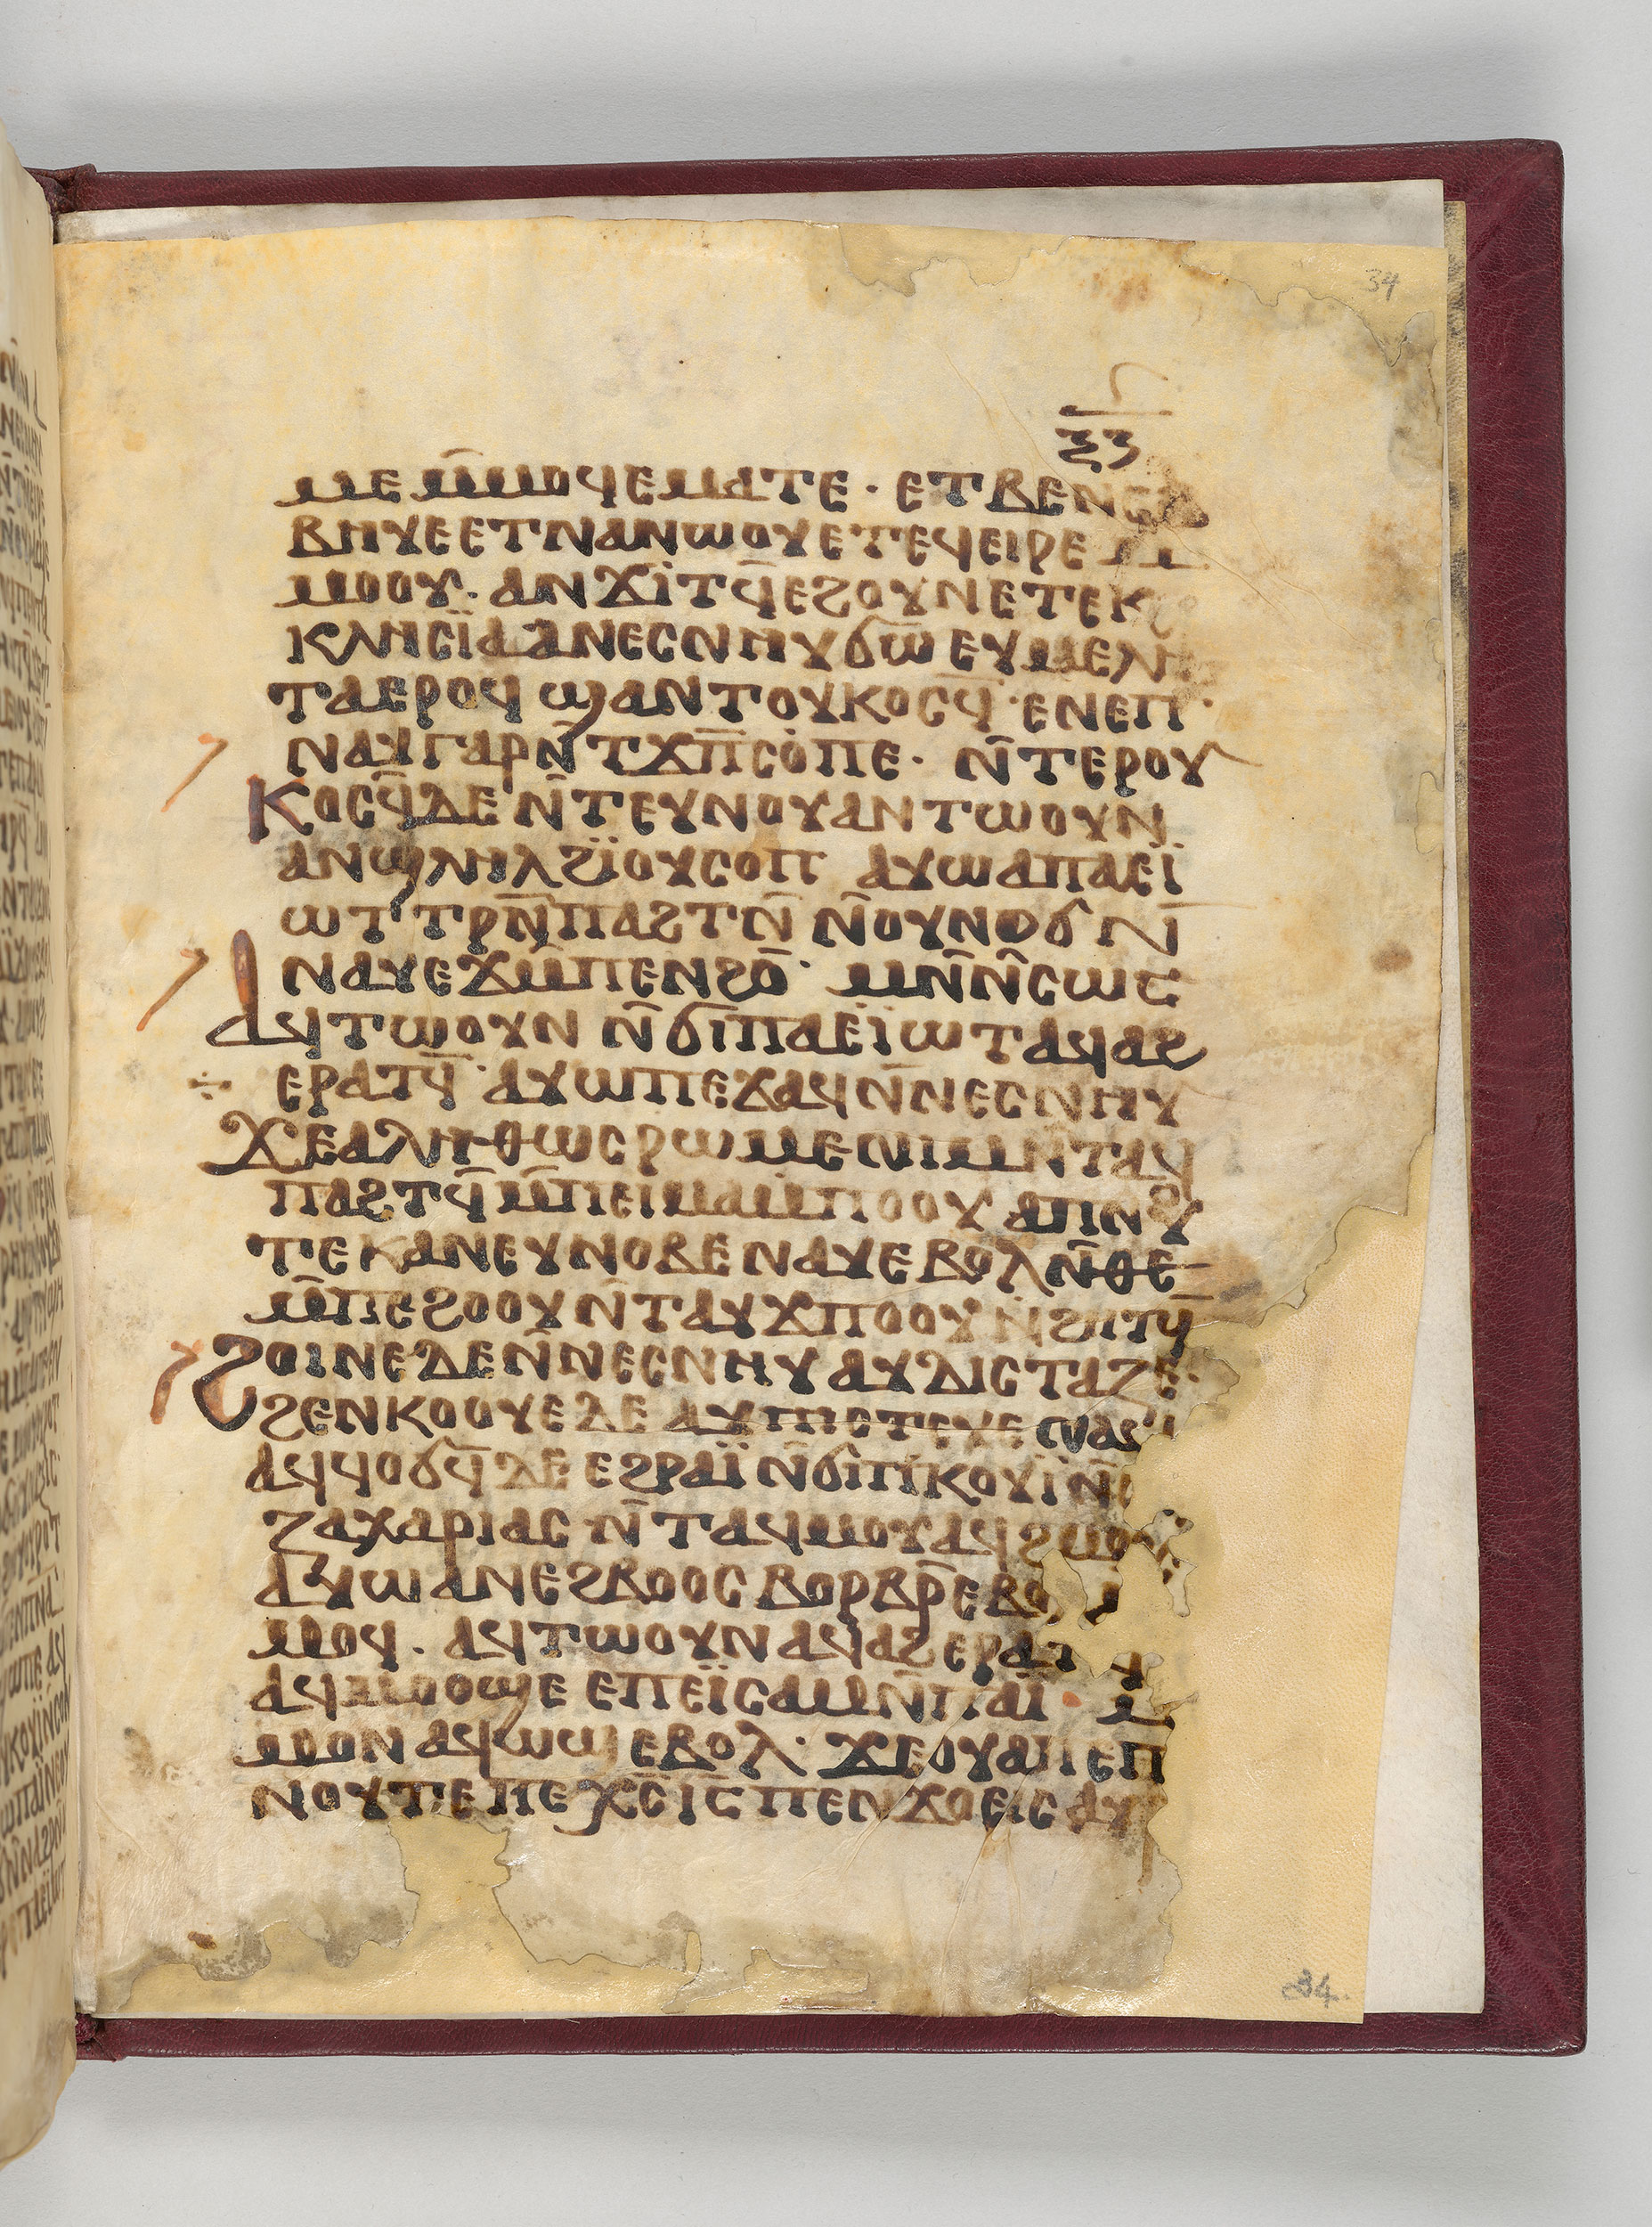 34
ⲝⲍ
ⲙⲉ ⲙ̅ⲙⲟϥⲉⲙⲁⲧⲉ · ⲉⲧⲃⲉⲛⲉϩ
ⲃⲏⲩⲉⲉⲧⲛⲁⲛⲱⲟⲩⲉⲧⲉϥⲉⲓⲣⲉ ⲙ̅
ⲙⲟⲟⲩ · ⲁⲛϫⲓⲧϥ̅ⲉϩⲟⲩⲛⲉⲧⲉⲕ
ⲕⲗⲏⲥⲓ̈ⲁⲁⲛⲉⲥⲛⲏⲩϭⲱ ⲉⲩⲙⲉⲗⲉ
ⲧⲁⲉⲣⲟϥ ϣⲁⲛⲧⲟⲩⲕⲟⲥϥ̅ · ⲉⲛⲉⲡ
ⲛⲁⲩⲅⲁⲣⲛ̅ⲧϫⲡ̅ⲥⲟⲡⲉ · ⲛ̅ⲧⲉⲣⲟⲩ
ⲕⲟⲥϥ̅ⲇⲉ ⲛ̅ⲧⲉⲩⲛⲟⲩⲁⲛⲧⲱⲟⲩⲛ
ⲁⲛϣⲗⲏⲗϩⲓ̈ⲟⲩⲥⲟⲡ ⲁⲩⲱⲁⲡⲁⲉⲓ̈
ⲱⲧ ⲧⲣⲛ̅ⲡⲁϩⲧⲛ̅ ⲛ̅ⲟⲩⲛⲟϭ ⲛ̅
ⲛⲁⲩⲉϫⲙ̅ⲡⲉⲛϩⲟ · ⲙⲛ̅ⲛ̅ⲥⲱⲥ
ⲁϥⲧⲱⲟⲩⲛ ⲛ̅ϭⲓⲡⲁⲉⲓ̈ⲱⲧⲁϥⲁϩ
ⲉⲣⲁⲧϥ̅ · ⲁⲩⲱⲡⲉϫⲁϥⲛ̅ⲛⲉⲥⲛⲏⲩ
ϫⲉⲁⲗⲏⲑⲱⲥⲣⲱⲙⲉⲛⲓⲙⲛ̅ⲧⲁϥ
ⲡⲁϩⲧϥ̅ⲙ̅ⲡⲉⲓⲙⲁⲙ̅ⲡⲟⲟⲩ ⲁⲡⲛⲟⲩ
ⲧⲉⲕⲁⲛⲉⲩⲛⲟⲃⲉ ⲛⲁⲩⲉⲃⲟⲗⲛ̅ⲑⲉ
ⲙ̅ⲡⲉϩⲟⲟⲩⲛ̅ⲧⲁⲩϫⲡⲟⲟⲩⲛ̅ϩⲏⲧϥ̅
ϩⲟⲓⲛⲉⲇⲉⲛ̅ⲛⲉⲥⲛⲏⲩⲁⲩⲇⲓⲥⲧⲁⲍⲉ ·
ϩⲉⲛⲕⲟⲟⲩⲉⲇⲉ ⲁⲩⲡⲓⲥⲧⲉⲩⲉ ⲛⲁϥ
ⲁϥϥⲟϭϥ̅ⲇⲉ ⲉϩⲣⲁⲓ̈ ⲛ̅ϭⲓⲡⲕⲟⲩⲓ̈ ⲛ̅
ⲍⲁⲭⲁⲣⲓⲁⲥ ⲛ̅ⲧⲁϥⲙⲟⲩⲁϥϩⲙⲟ
ⲁⲩⲱⲁⲛⲉϩⲃⲟⲟⲥ ⲃⲟⲣⲃⲣ̅ⲉⲃⲟ
ⲙⲟϥ · ⲁϥⲧⲱⲟⲩⲛ ⲁϥⲁϩⲉⲣⲁⲧϥ
ⲁϥⲙⲟⲟϣⲉ ⲉⲡⲉⲓ̈ⲥⲁⲙⲛ̅ⲡⲁⲓ̈ · ⲗ
ⲙⲟⲛ ⲁϥⲱϣ ⲉⲃⲟⲗ · ϫⲉⲟⲩⲁⲡⲉⲡ
ⲛⲟⲩⲧⲉⲡⲉⲭ̅ⲥ̅ⲓ̅ⲥ̅ ⲡⲉⲛϫⲟⲉⲓⲥⲁⲩ
34